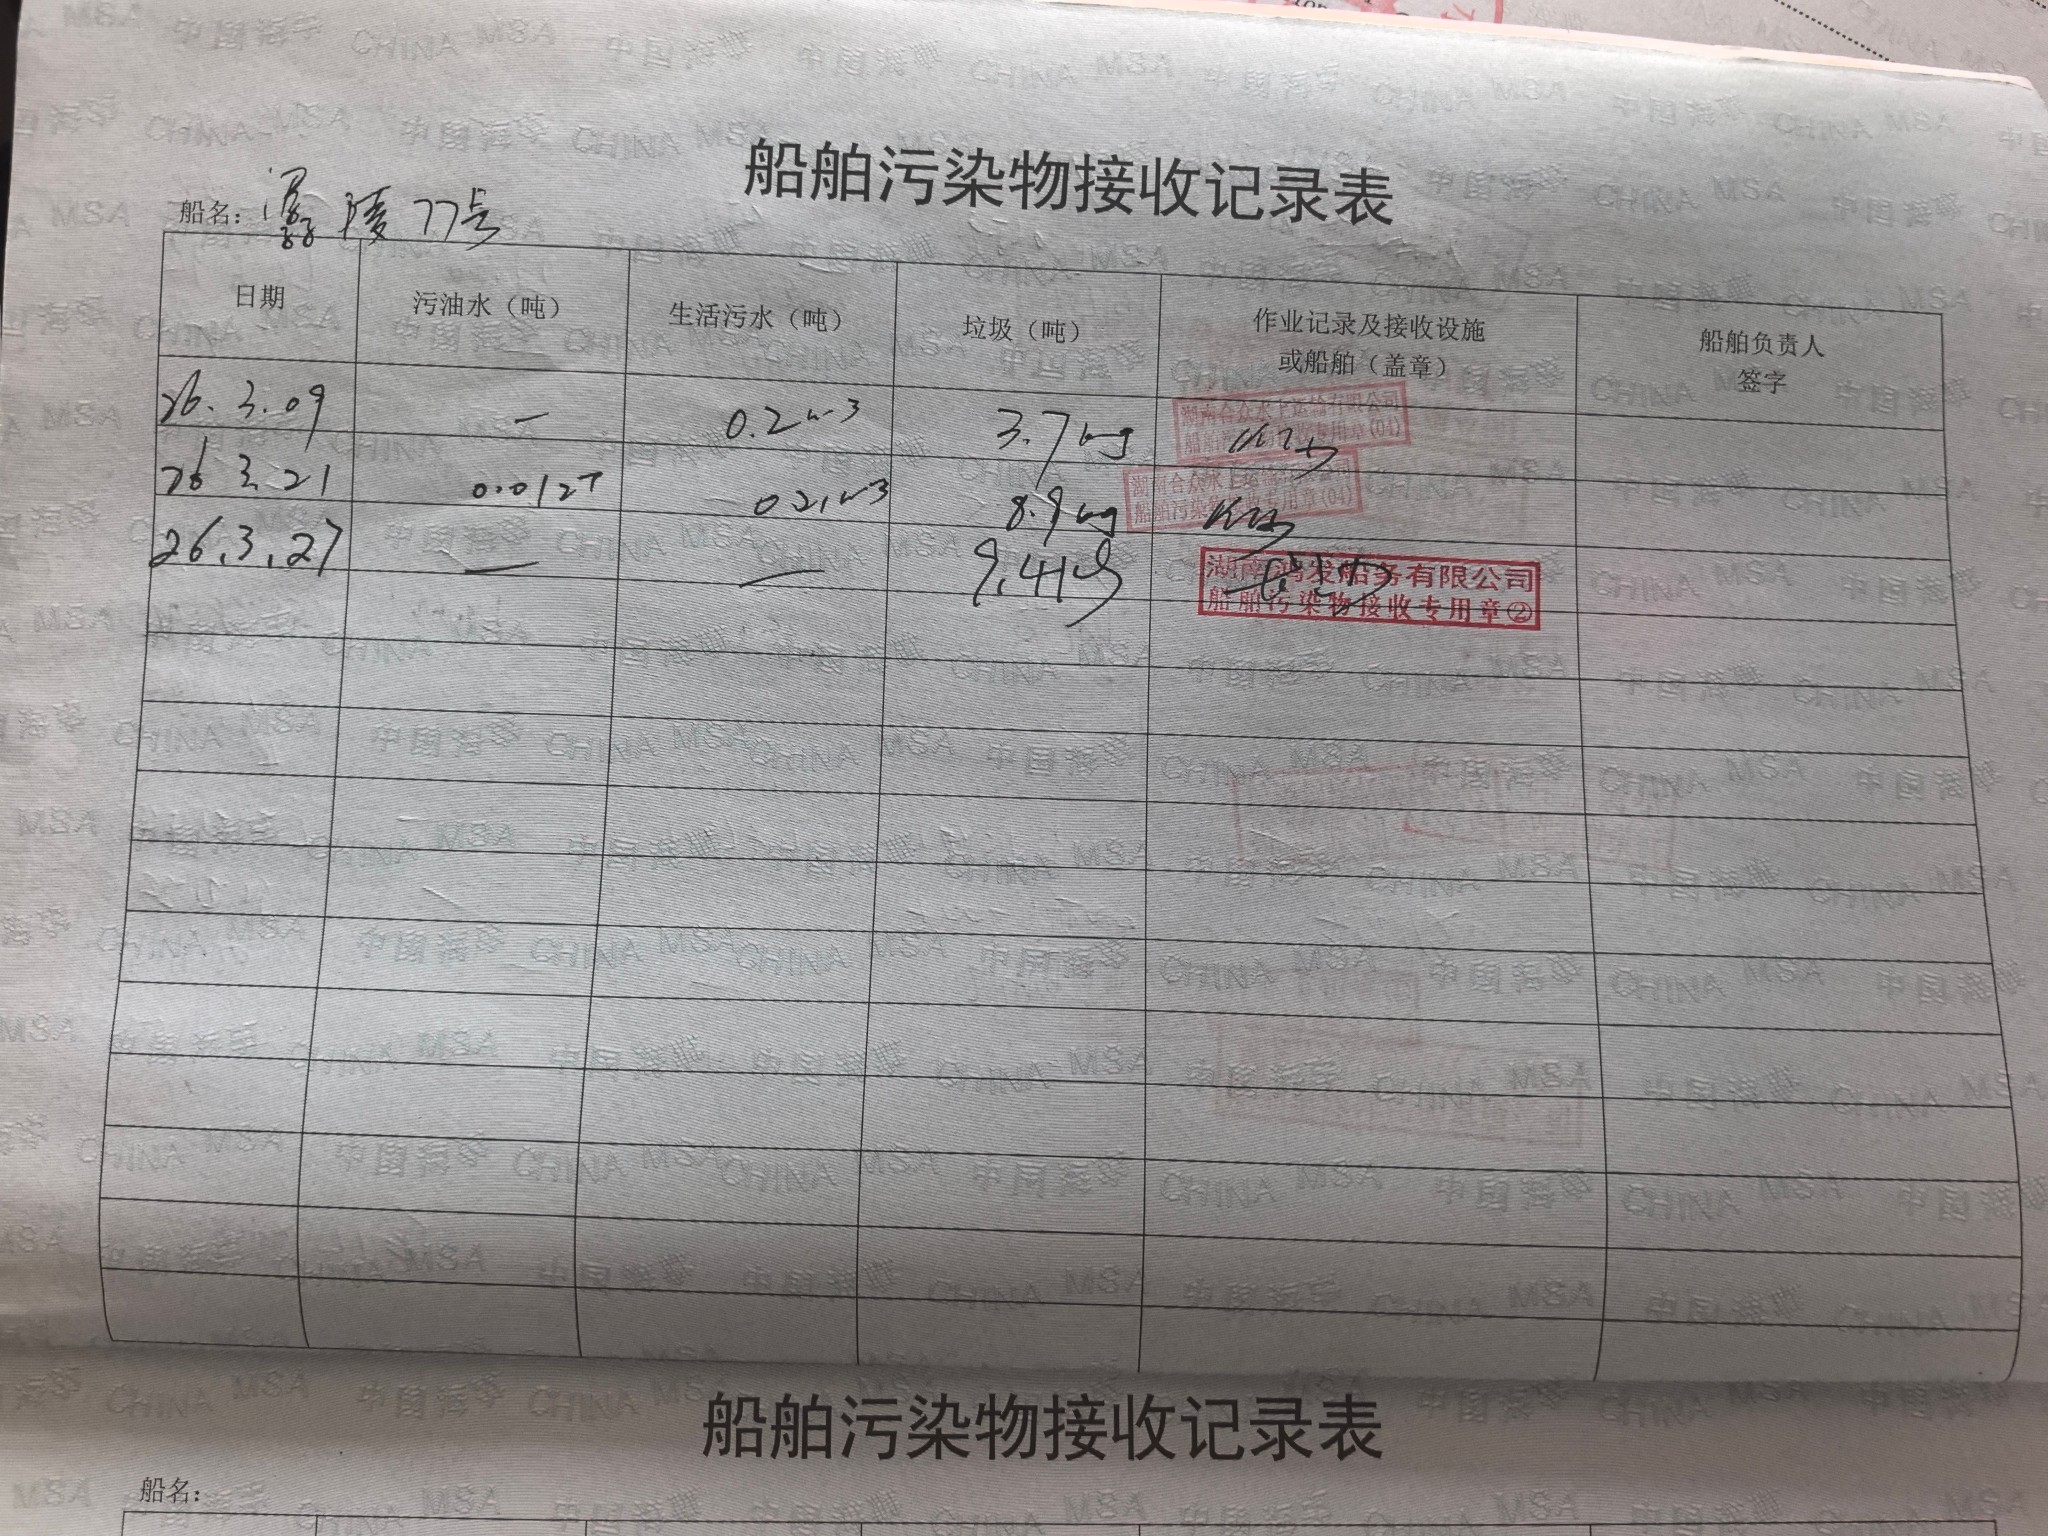 船舶污染物接收记录表
船名: 陵77号
日期 污油水（吨） 生活污水（吨） 垃圾（吨） 作业记录及接收设施或船舶（盖章） 船舶负责人签字
26.3.09 — 0.2m3 3.7kg
湖南合众水上运输有限公司
船舶污染物接收专用章(04)
26 3.21 0.012T 0.21m3 8.9kg
湖南合众水上运输有限公司
船舶污染物接收专用章(04)
26.3.27 — — 9.41kg
湖南鸿发船务有限公司
船舶污染物接收专用章②
船舶污染物接收记录表
船名:
中国海事 CHINA MSA